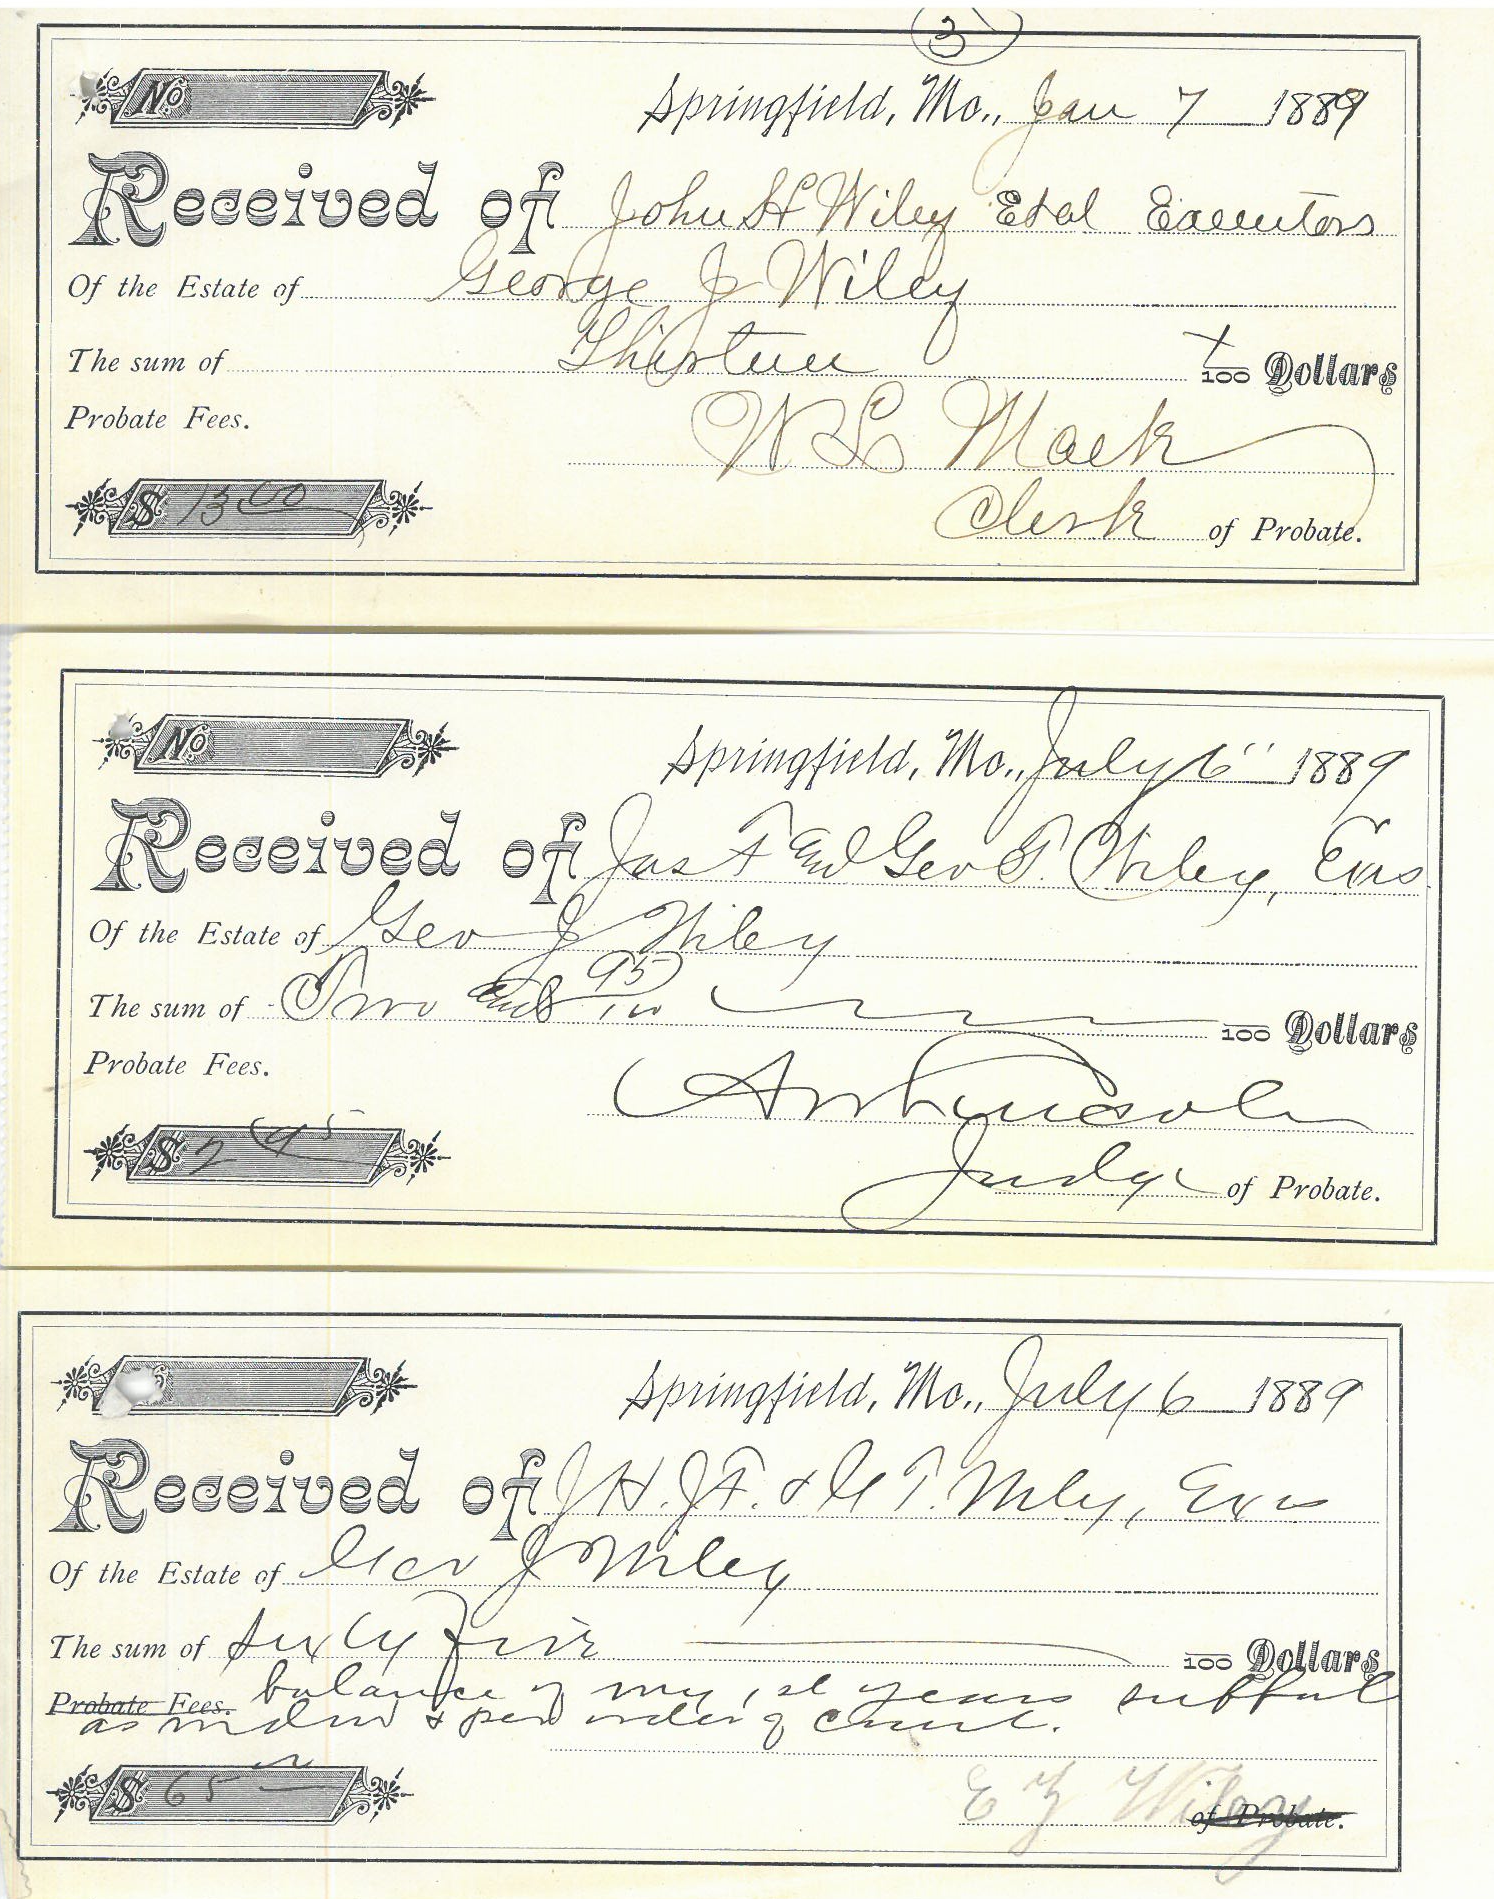 3
No
Springfield, Mo., Jan 7 1889
Received of John H Wiley Etal Executors
Of the Estate of George J Wiley
The sum of Thirteen x/100 Dollars
Probate Fees.
W L Mack
$ 13.00
Clerk of Probate.
No
Springfield, Mo., July 6" 1889
Received of Jas F and Geo T. Wiley, Exrs
Of the Estate of Geo J Wiley
The sum of Two and 95/100 /100 Dollars
Probate Fees.
$ 2 95
Judge of Probate.
Springfield, Mo., July 6 1889
Received of J H. J F. & G T. Wiley, Exrs
Of the Estate of Geo J Wiley
The sum of Sixty five /100 Dollars
Probate Fees. balance of my 1st years support
as widow & per order of court.
$ 65
E Z Wiley
of Probate.